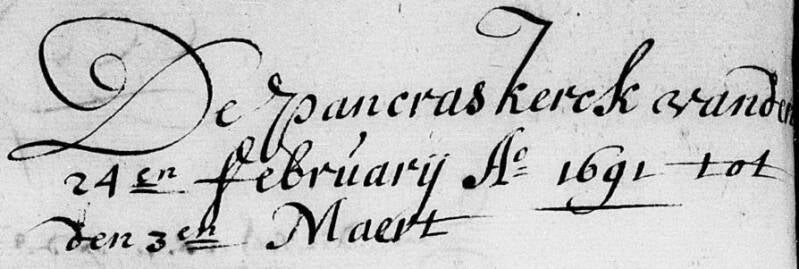 De Pancras kerck vanden
24en februarij Ao 1691 tot
den 3en Maert